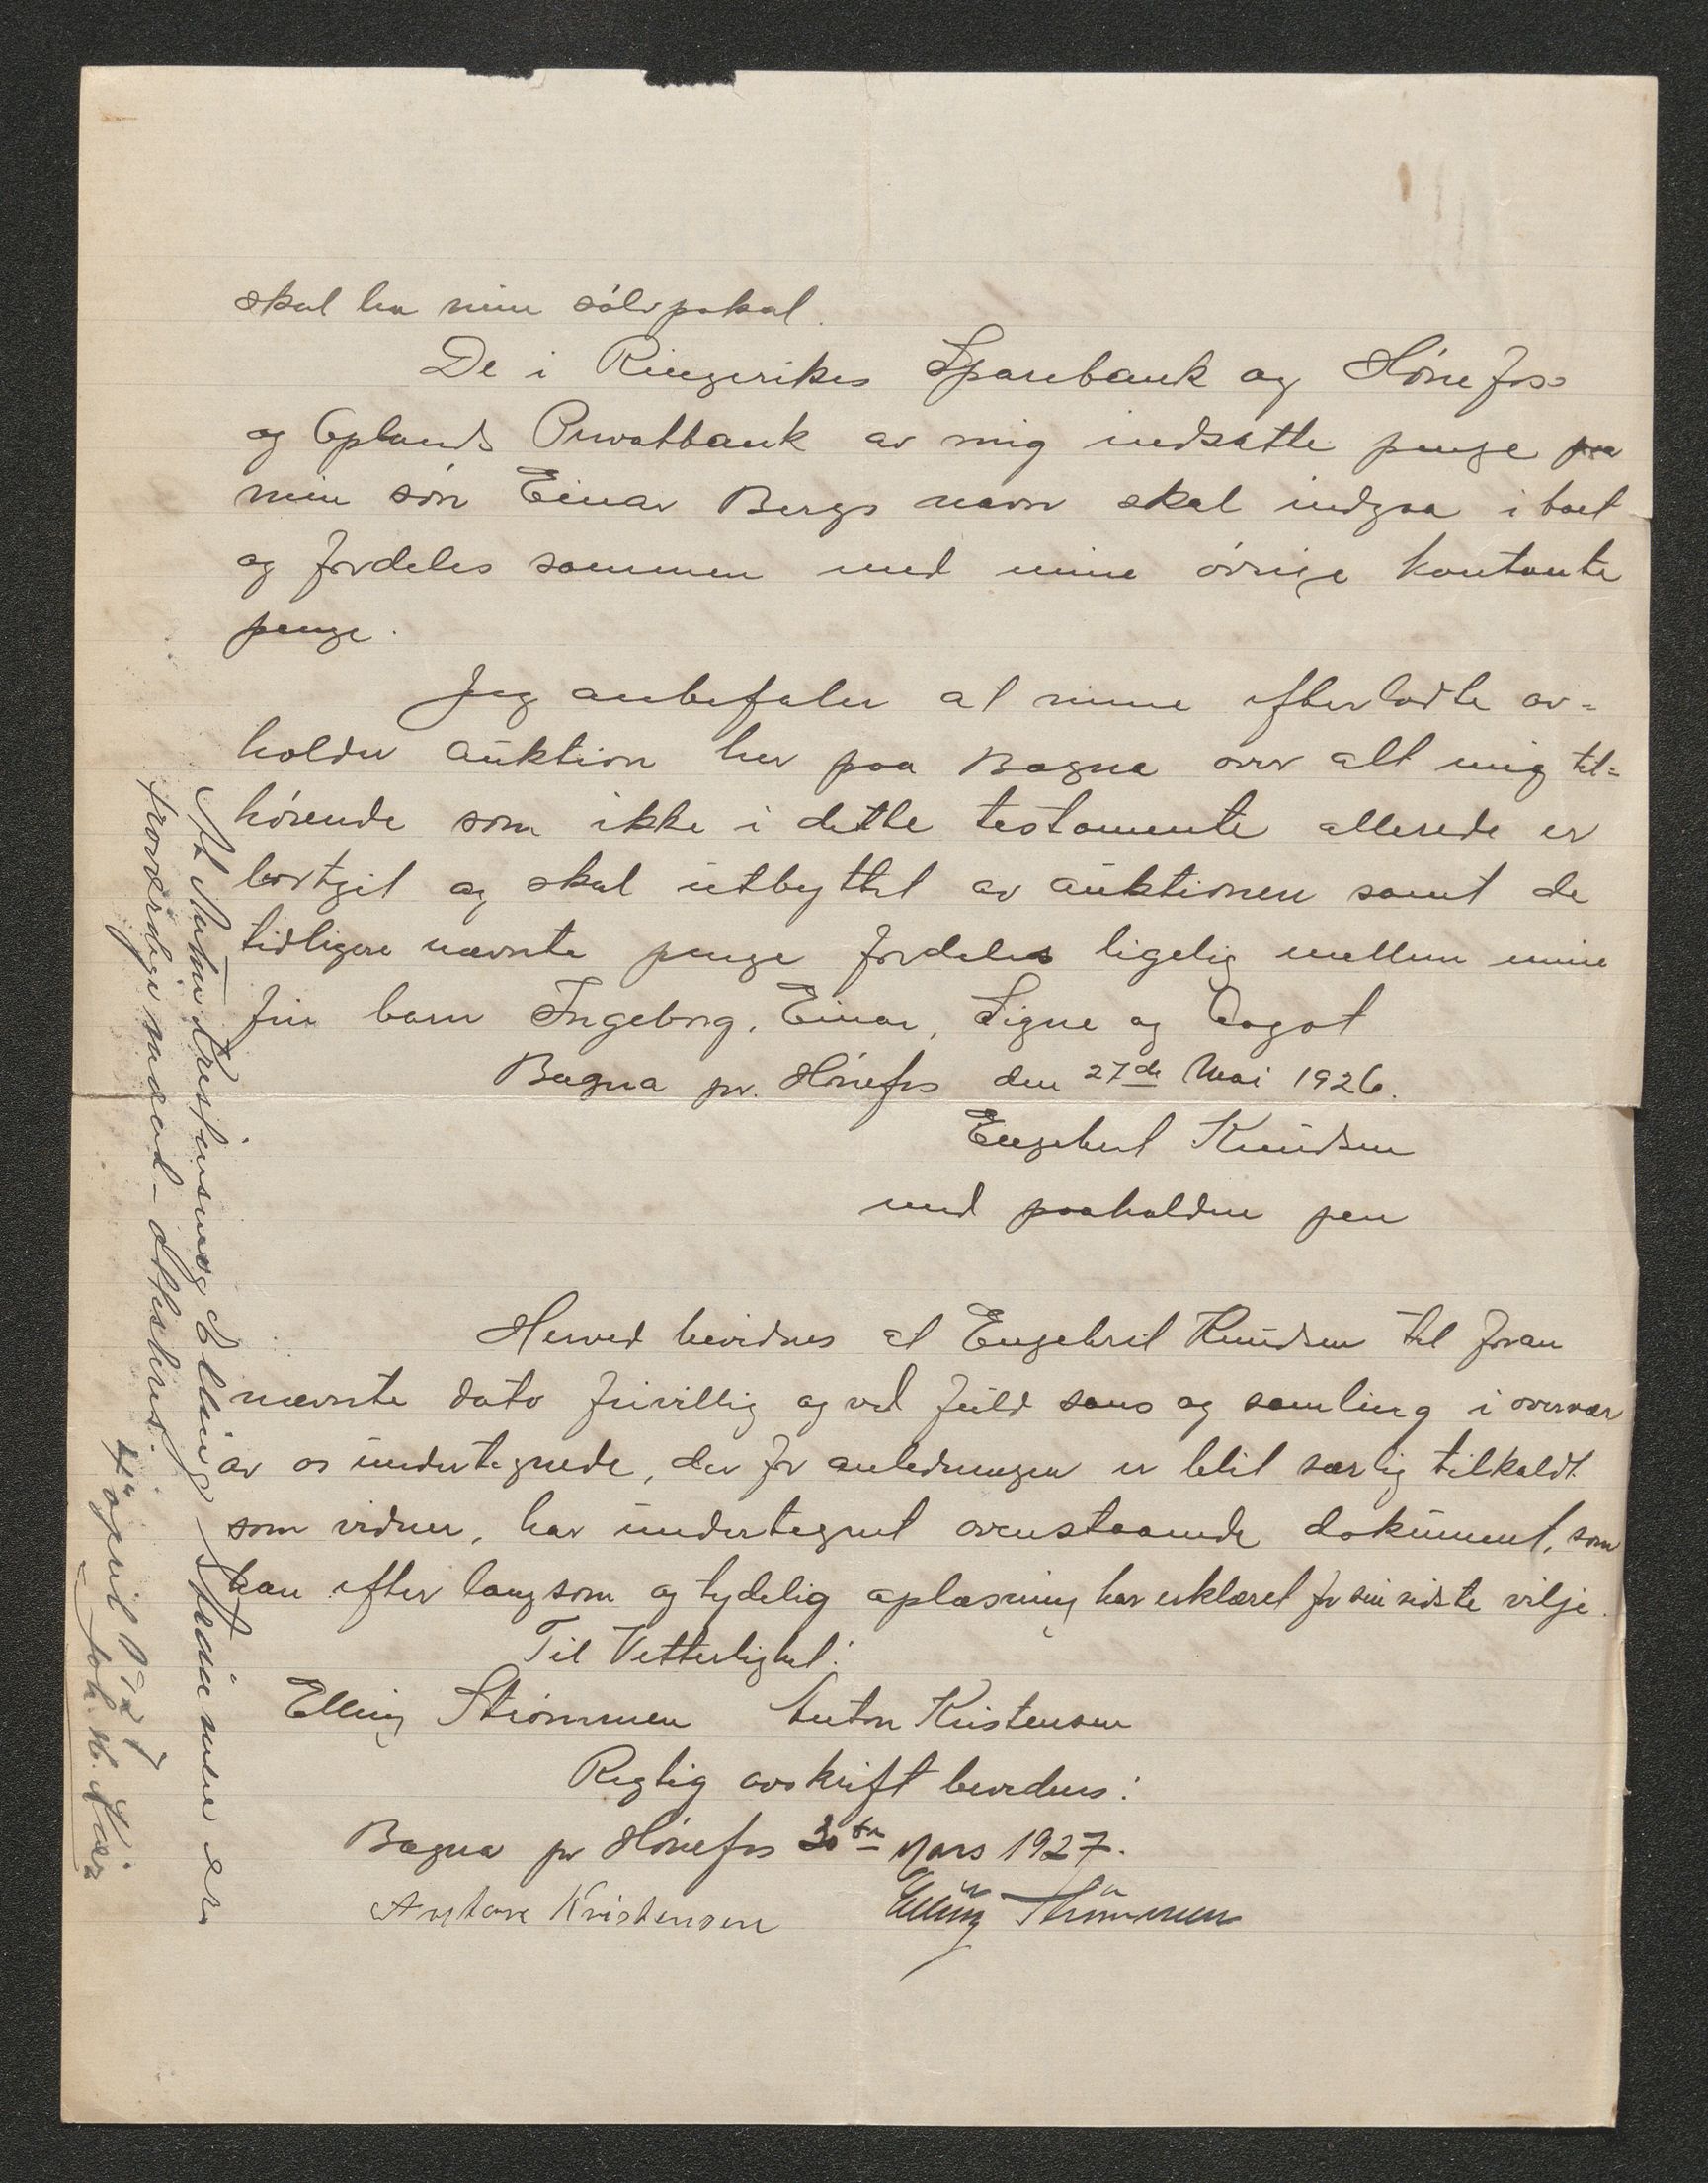 skal ha min sølvpokal.
De i Ringerikes Sparebank og Hønefos
og Oplands Privatbank av mig indsatte penge paa
min søn Einar Bergs navn skal indgaa i boet
og fordeles sammen med mine øvrige kontante
penge.
Jeg anbefaler at mine efterladte av=
holder auktion her paa Bægna over alt mig til=
hørende som ikke i dette testamente allerede er
bortgit og skal utbyttet av auktionen samt de
tidligere nævnte penge fordeles ligelig mellem mine
fire barn Ingeborg, Einar, Signe og Aagot
Bægna pr. Hønefos den 27de Mai 1926.
Engebret Knudsen
med paaholden pen
Herved bevidnes at Engebret Knudsen til foran
nævnte dato frivillig og ved fuld sans og samling i overvær
av os undertegnede, der for anledningen er blit særlig tilkaldt
som vidner, har undertegnet ovenstaaende dokument, som
han efter langsom og tydelig oplæsning har erklæret for sin sidste vilje.
Til Vitterlighet:
Elling Strømmen Anton Kristensen
Rigtig avskrift bevidnes:
Bægna pr Hønefos 30te Mars 1927.
Anton Kristensen Elling Strømmen
At Anton Kristensen og Elling Strømmen er
troværdige mænd - attesteres.
4 april 1927
Joh. H.